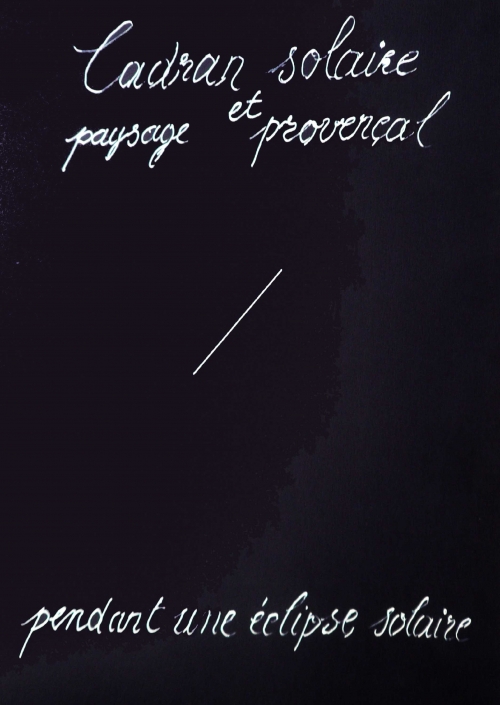 Cadran solaire
et
paysage provençal
pendant une éclipse solaire